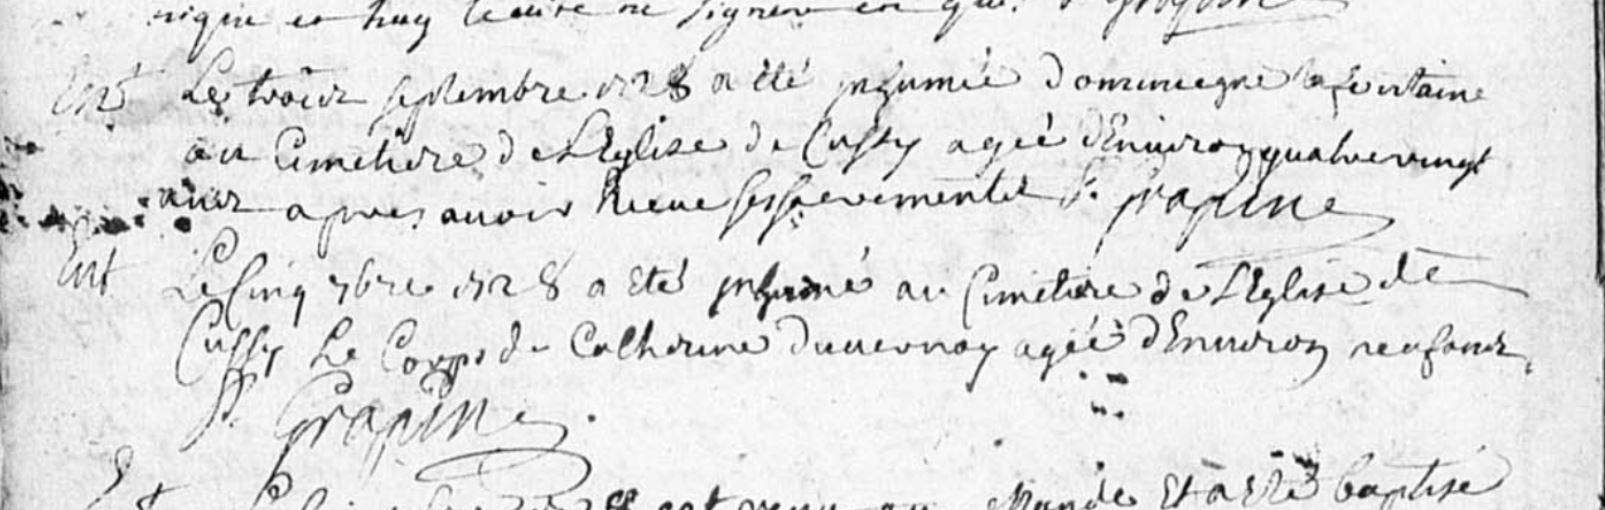 ne signer en
Ent Le troisr septembre 1728 a été inhumée dominicque lafontaine
au Cimetiere de LEglise de Cussy agéé dEnuiron quatrevingt
ansr apres auoir Recue sessacrementsr P. Grapine
Ent Le Cinq 7bre 1728 a Eté inhumé au Cimetiere de LEglise de
Cussy Le Corps de Catherine Duuernoy agéé dEnuiron neufansr
P. Grapine
Et a Eté baptisé